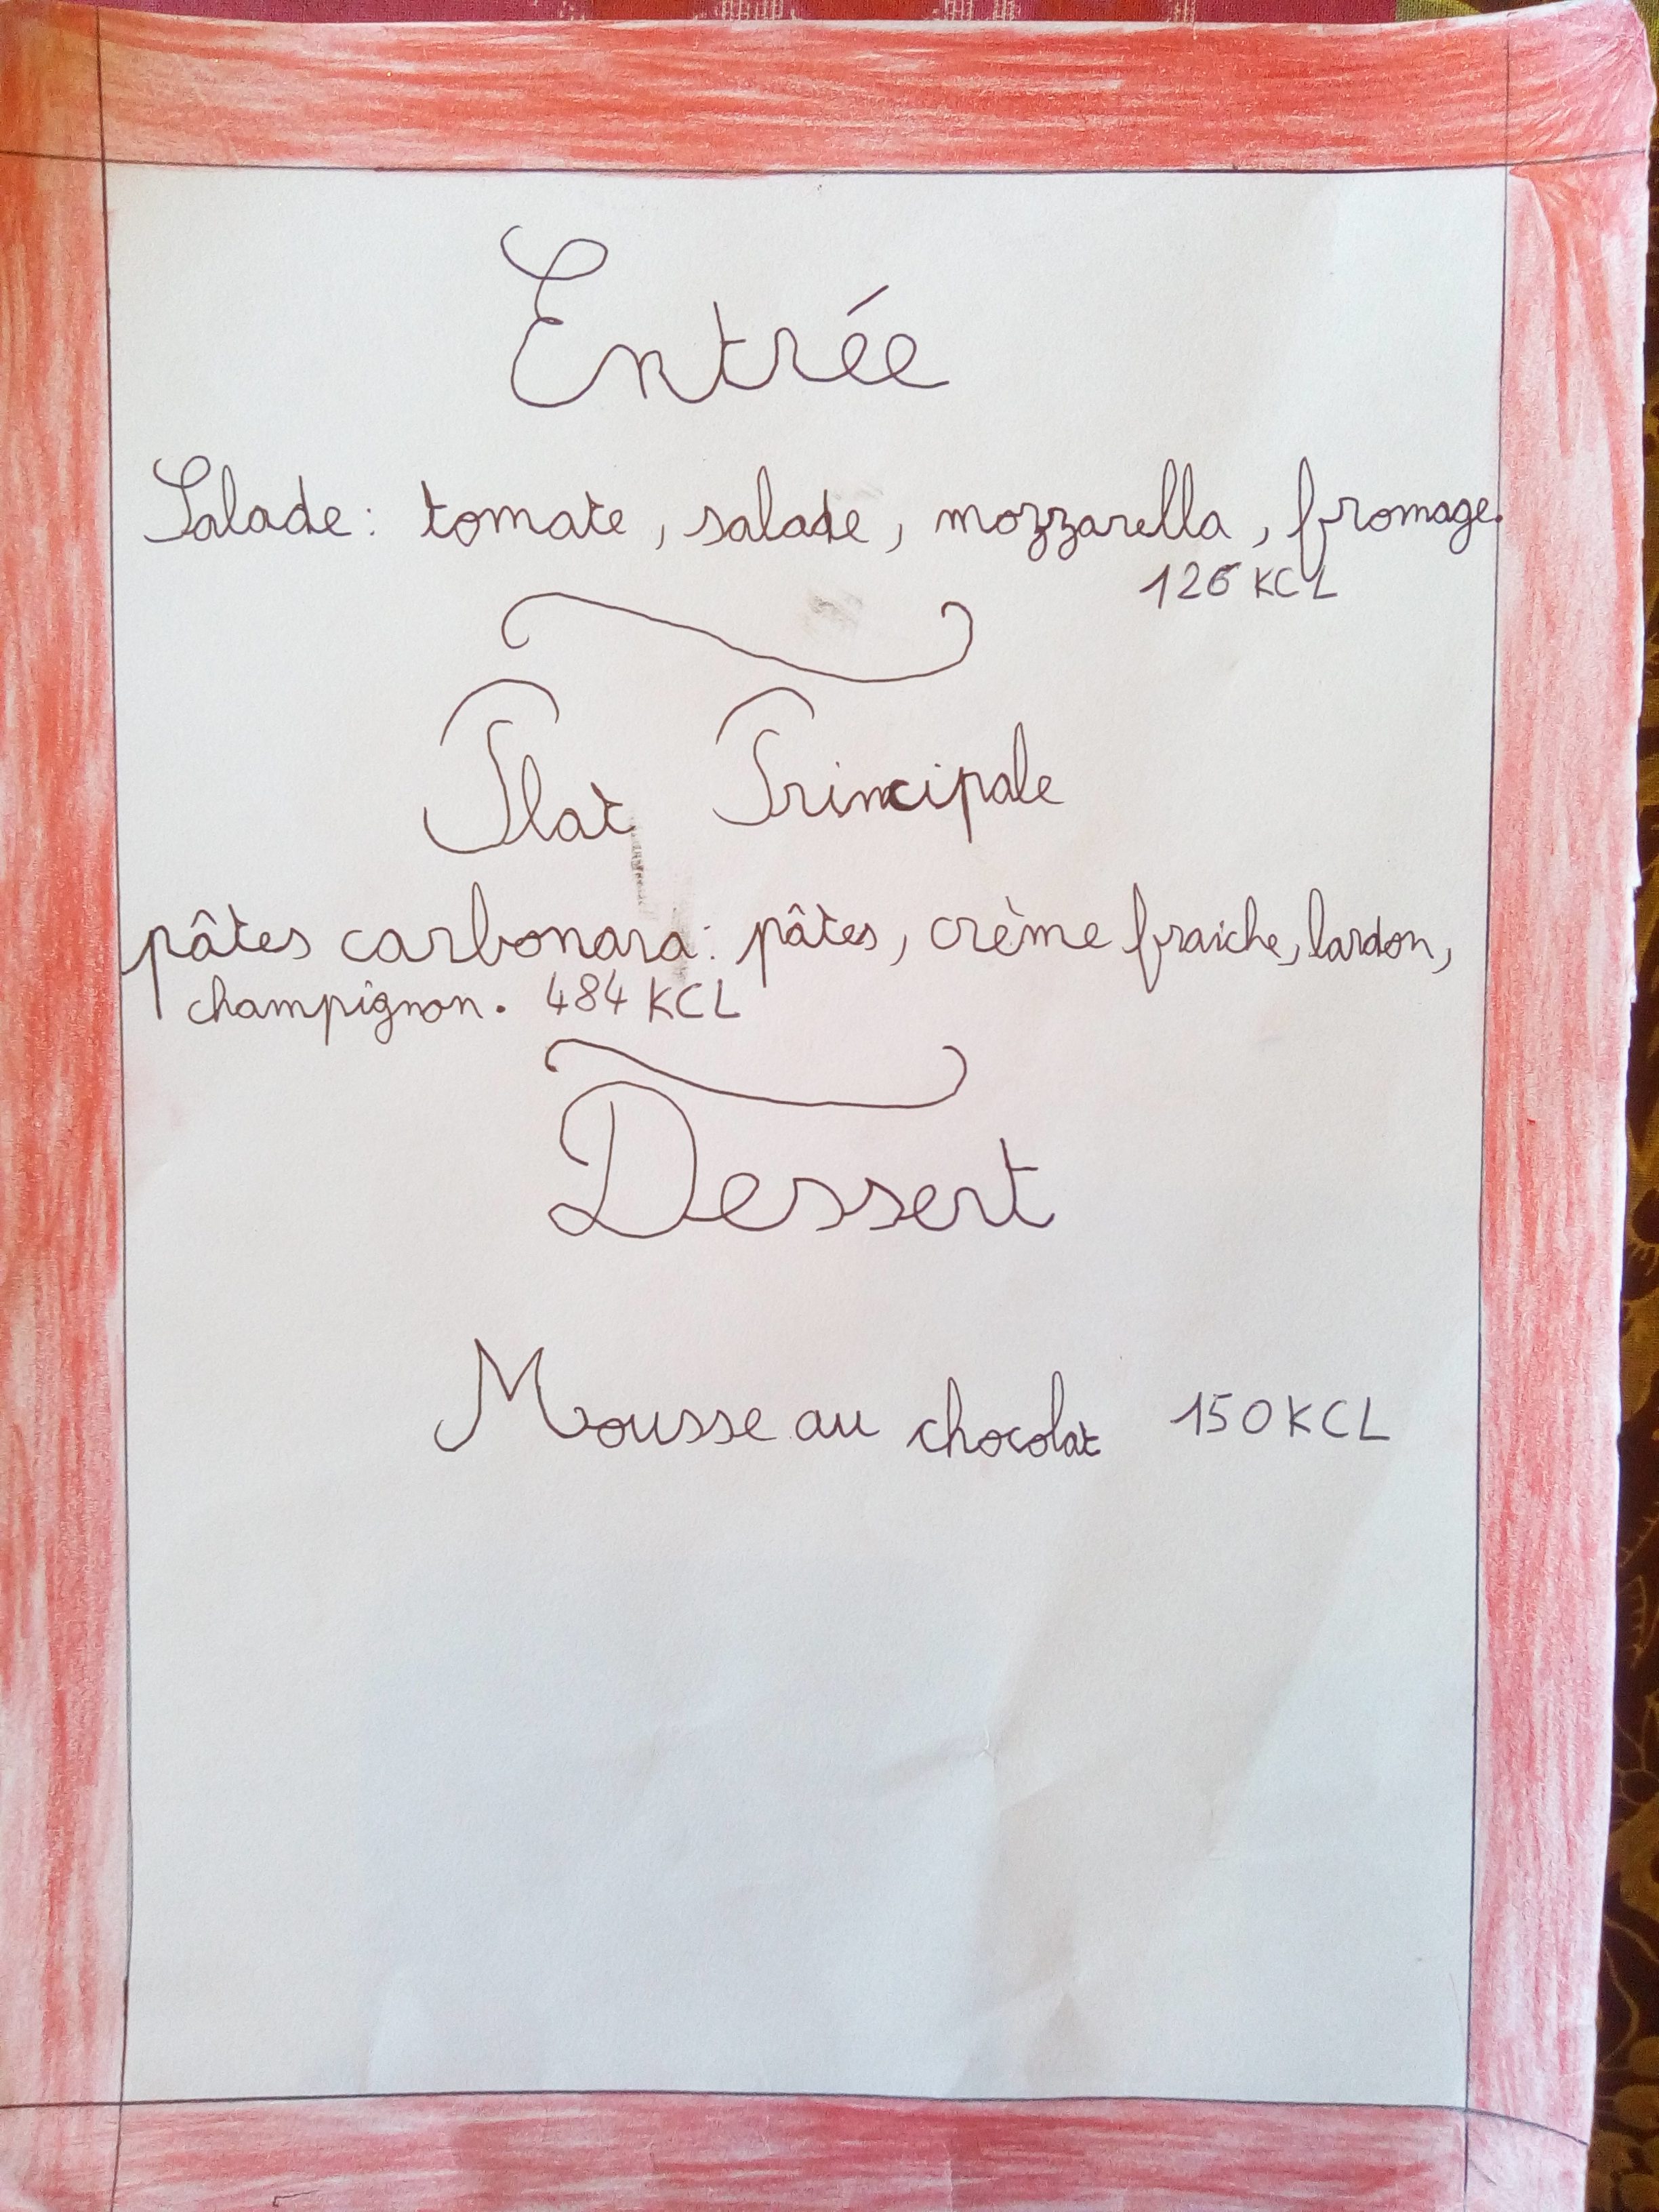 Entrée
Salade : tomate, salade, mozzarella, fromage.
126 KCL
Plat Principale
pâtes carbonara : pâtes, crème fraiche, lardon,
champignon. 484 KCL
Dessert
Mousse au chocolat 150 KCL